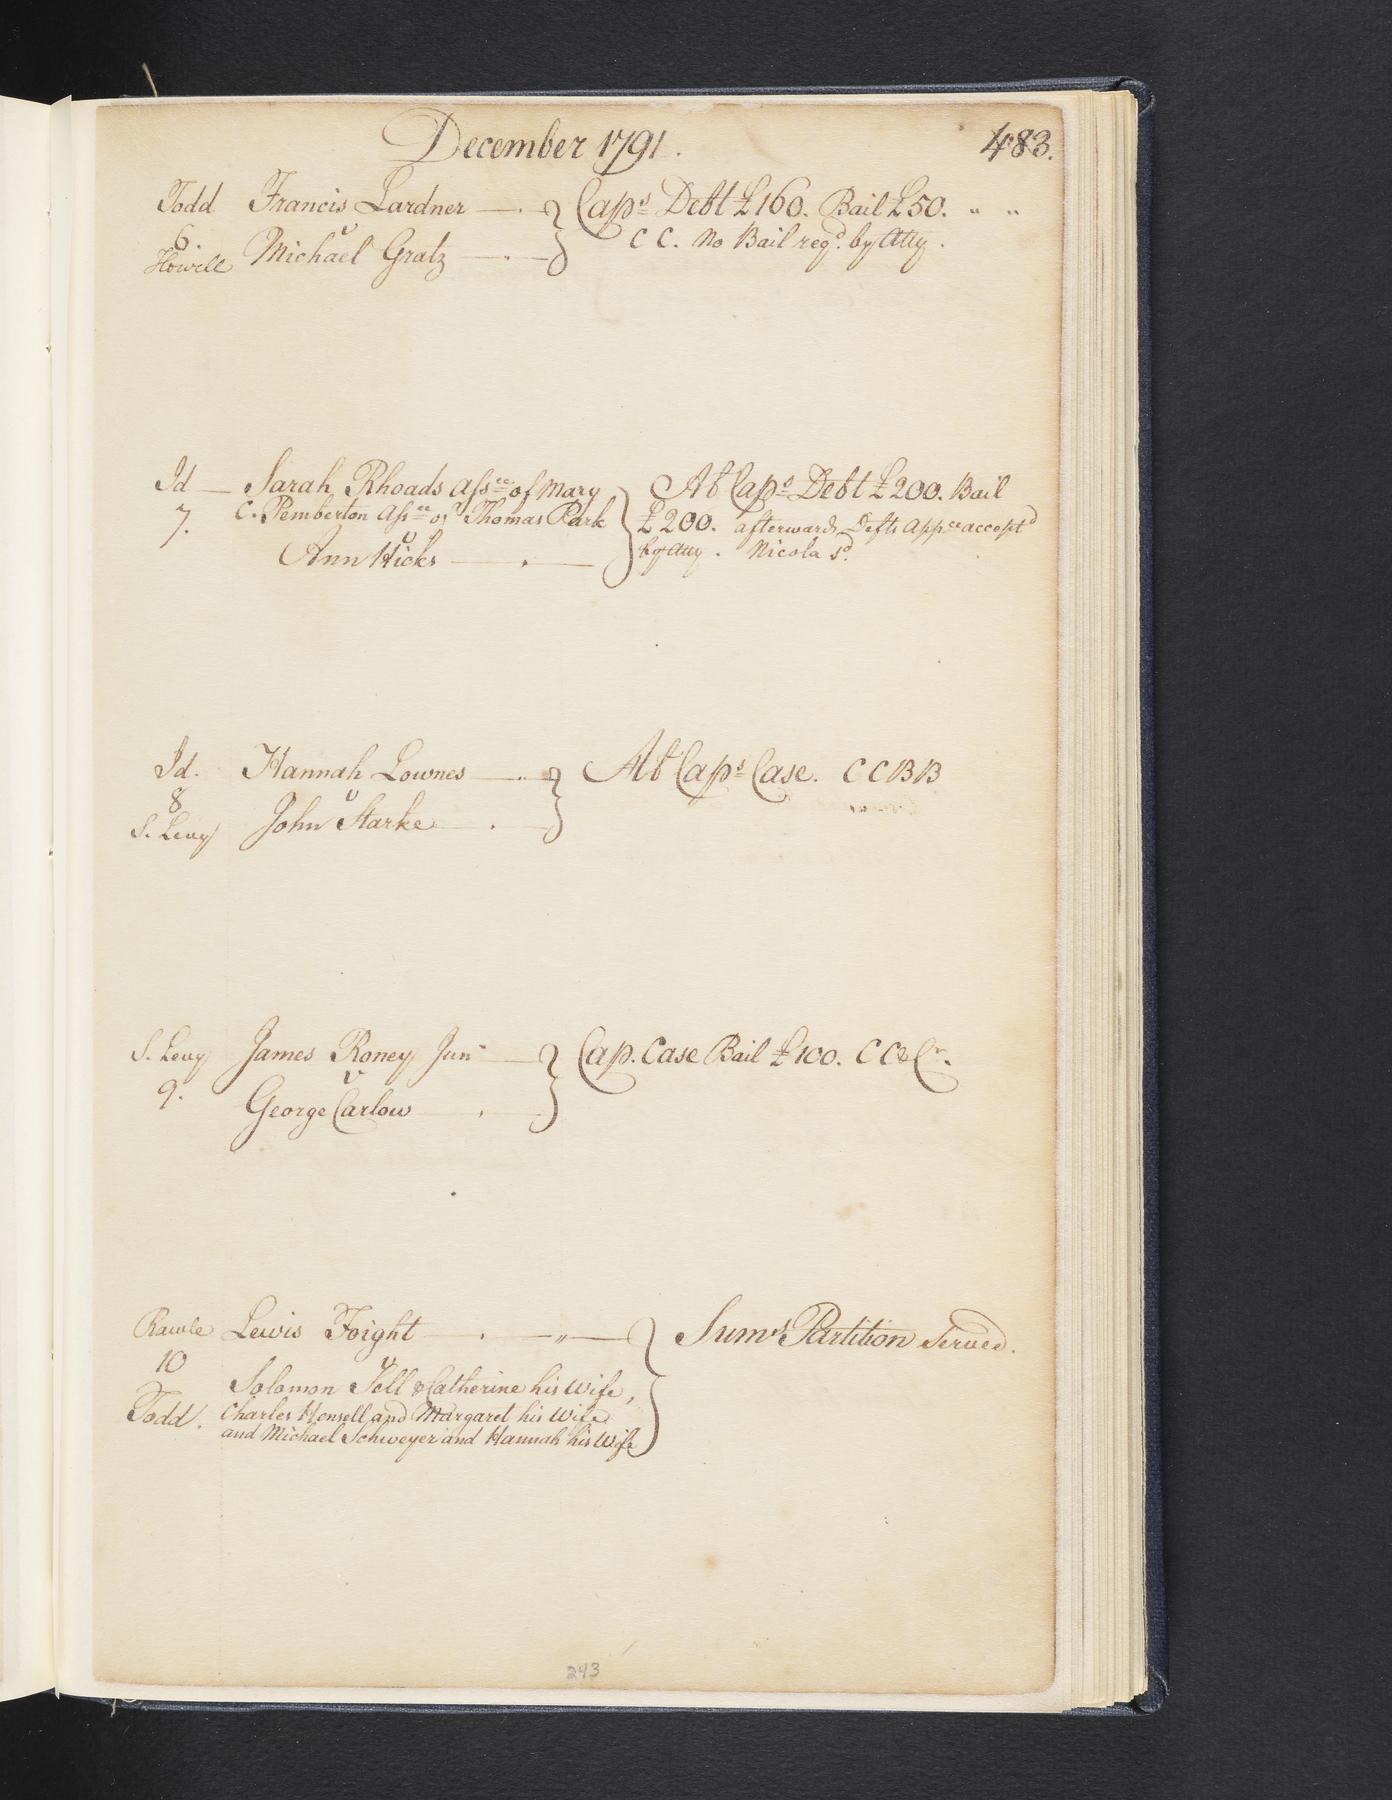 December 1791.
483.
Todd Francis Lardner } Caps Debt £160. Bail £50. " "
6. v C C. No Bail reqd. by Atty.
Howell Michael Gratz
Id Sarah Rhoads Assee of Mary } Al Caps Debt £200. Bail
7. C. Pemberton Assee of Thomas Park £200. afterwards Defts appce acceptd
v by Atty. Nicola sd.
Ann Hicks
Id. Hannah Lownes } Al Caps Case. C C B B
8 v
S. Levy John Starke
S. Levy James Roney Junr } Cap. Case Bail £100. C C &
9. v
George Carlow
Rawle Lewis Foight } Sums Partition Served.
10 v
Solomon Sell & Catherine his Wife,
Todd. Charles Hensell and Margaret his Wife
and Michael Schweyer and Hannah his Wife
243